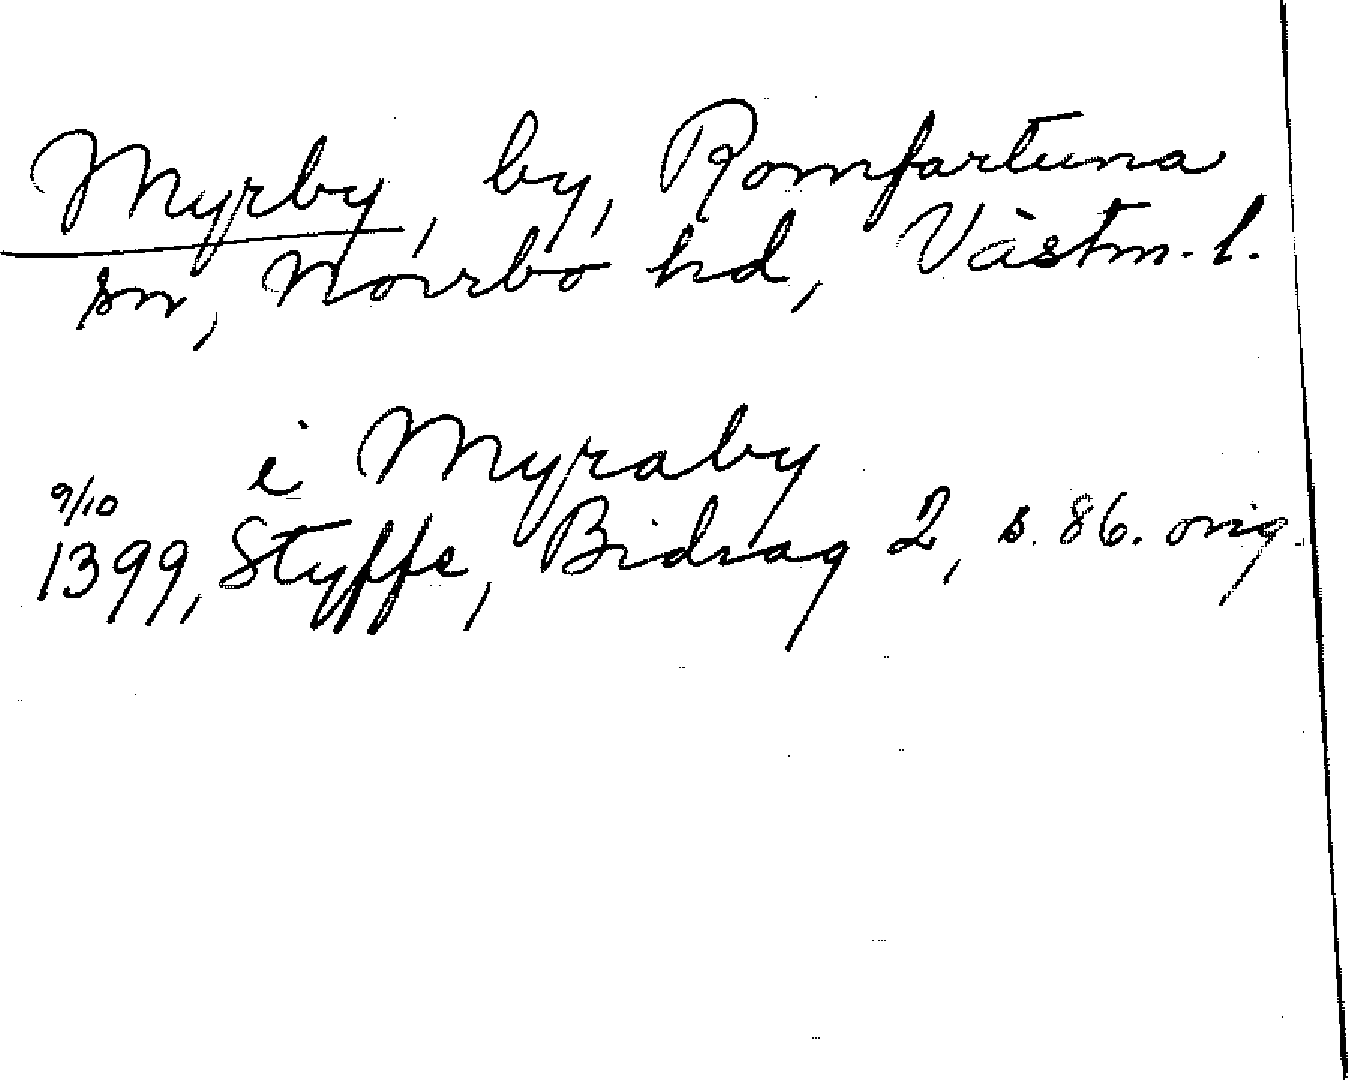 Myrby, by, Romfartuna
sn, Norrbo hd, Västm. l.
i Myraby
9/10
1399, Styffe, Bidrag 2, s. 86. orig.